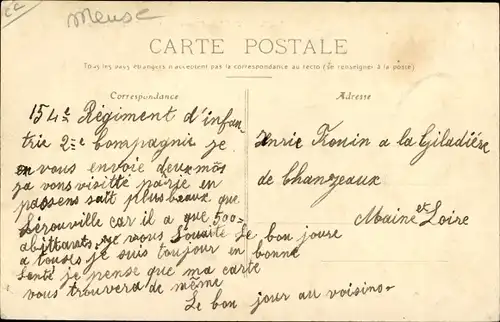 Meuse
CARTE POSTALE
Tous les pays étrangers n'acceptent pas la correspondance au recto (se renseigner à la poste)
Correspondance
154e Régiment d'infan-
trie 2e Compagnie je
en vous envoie deux môs
passens sait plus beaux que
Lérouville car il a que 500=
abittants, je vous Souaite Le bon joure
a touses je suis toujour en bonne
Santé je pense que ma carte
vous trouvera de même
Le bon jour au voisins-
Adresse
Henrie Fouin a la Giladiére
de Chanzeaux
Maine et Loire